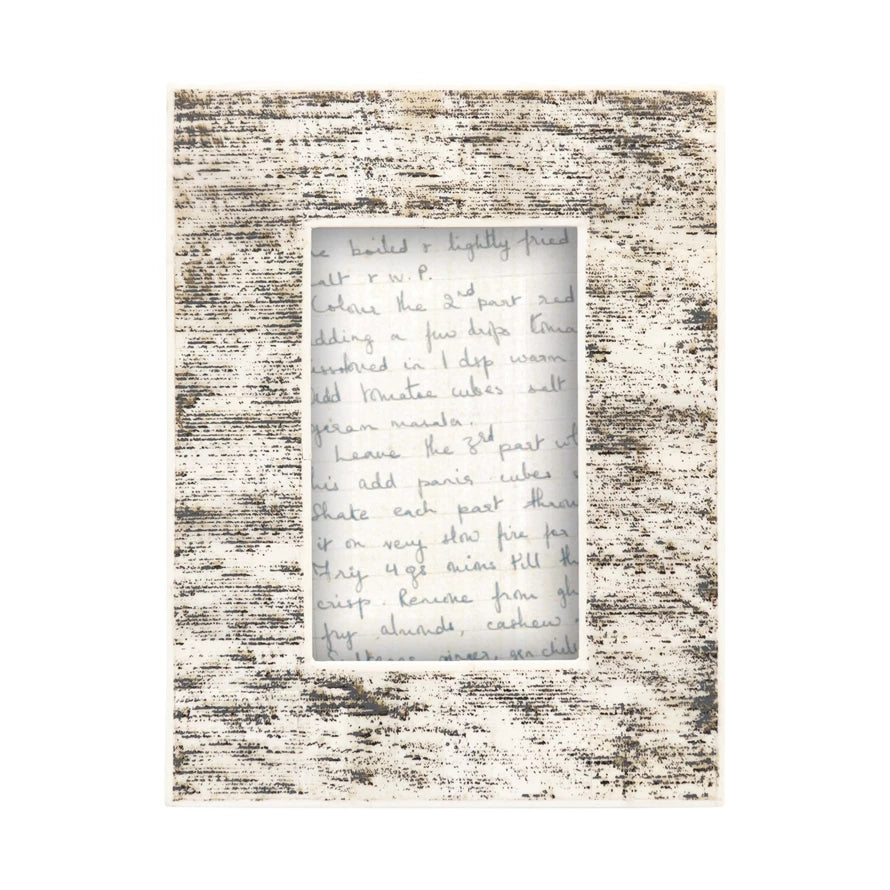 boiled & lightly fried
alt & W.P.
Colour the 2nd part red
dding a few drops toma
issolved in 1 dsp warm
Add tomatoe cubes salt
garam masala.
Leave the 3rd part
his add panir cubes
Shake each part throu
it on very slow fire for
Fry mins till th
crisp. Remove from gh
fry almonds, cashew
ginger, gr. chil